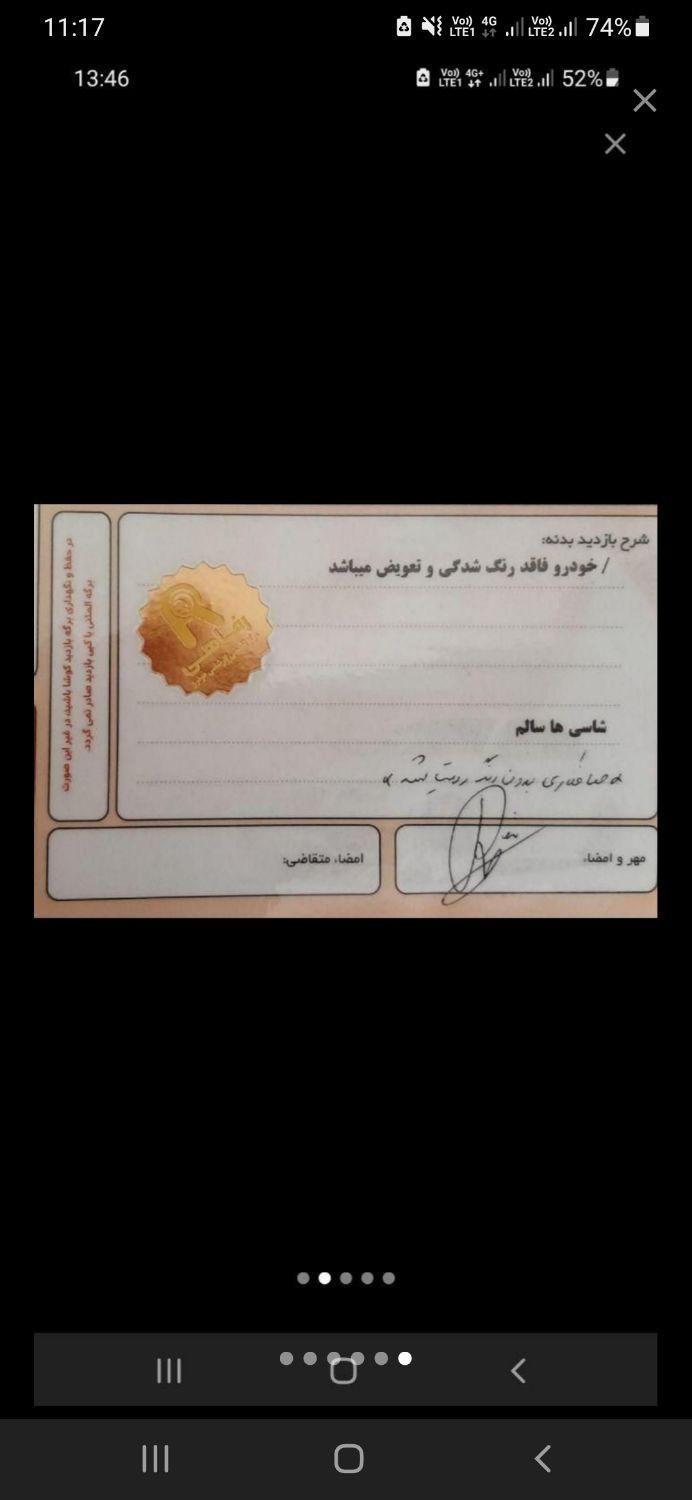 11:17
Vo)) LTE1 4G Vo)) LTE2 74%
13:46
Vo)) LTE1 4G+ Vo)) LTE2 52%
شرح بازدید بدنه:
/ خودرو فاقد رنگ شدگی و تعویض میباشد
شاسی ها سالم
صافکاری بدون رنگ رویت شد
مهر و امضاء
امضاء متقاضی:
در حفظ و نگهداری برگه بازدید کوشا باشید، در غیر این صورت
برگه المثنی یا کپی بازدید صادر نمی گردد.